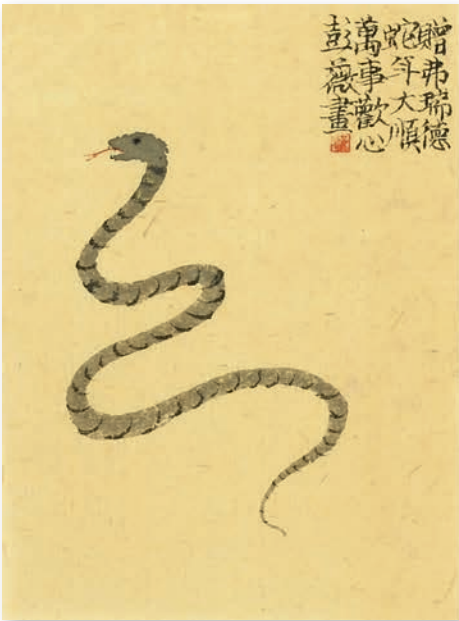 贈弗瑞德
蛇年大順
萬事歡心
彭薇畫